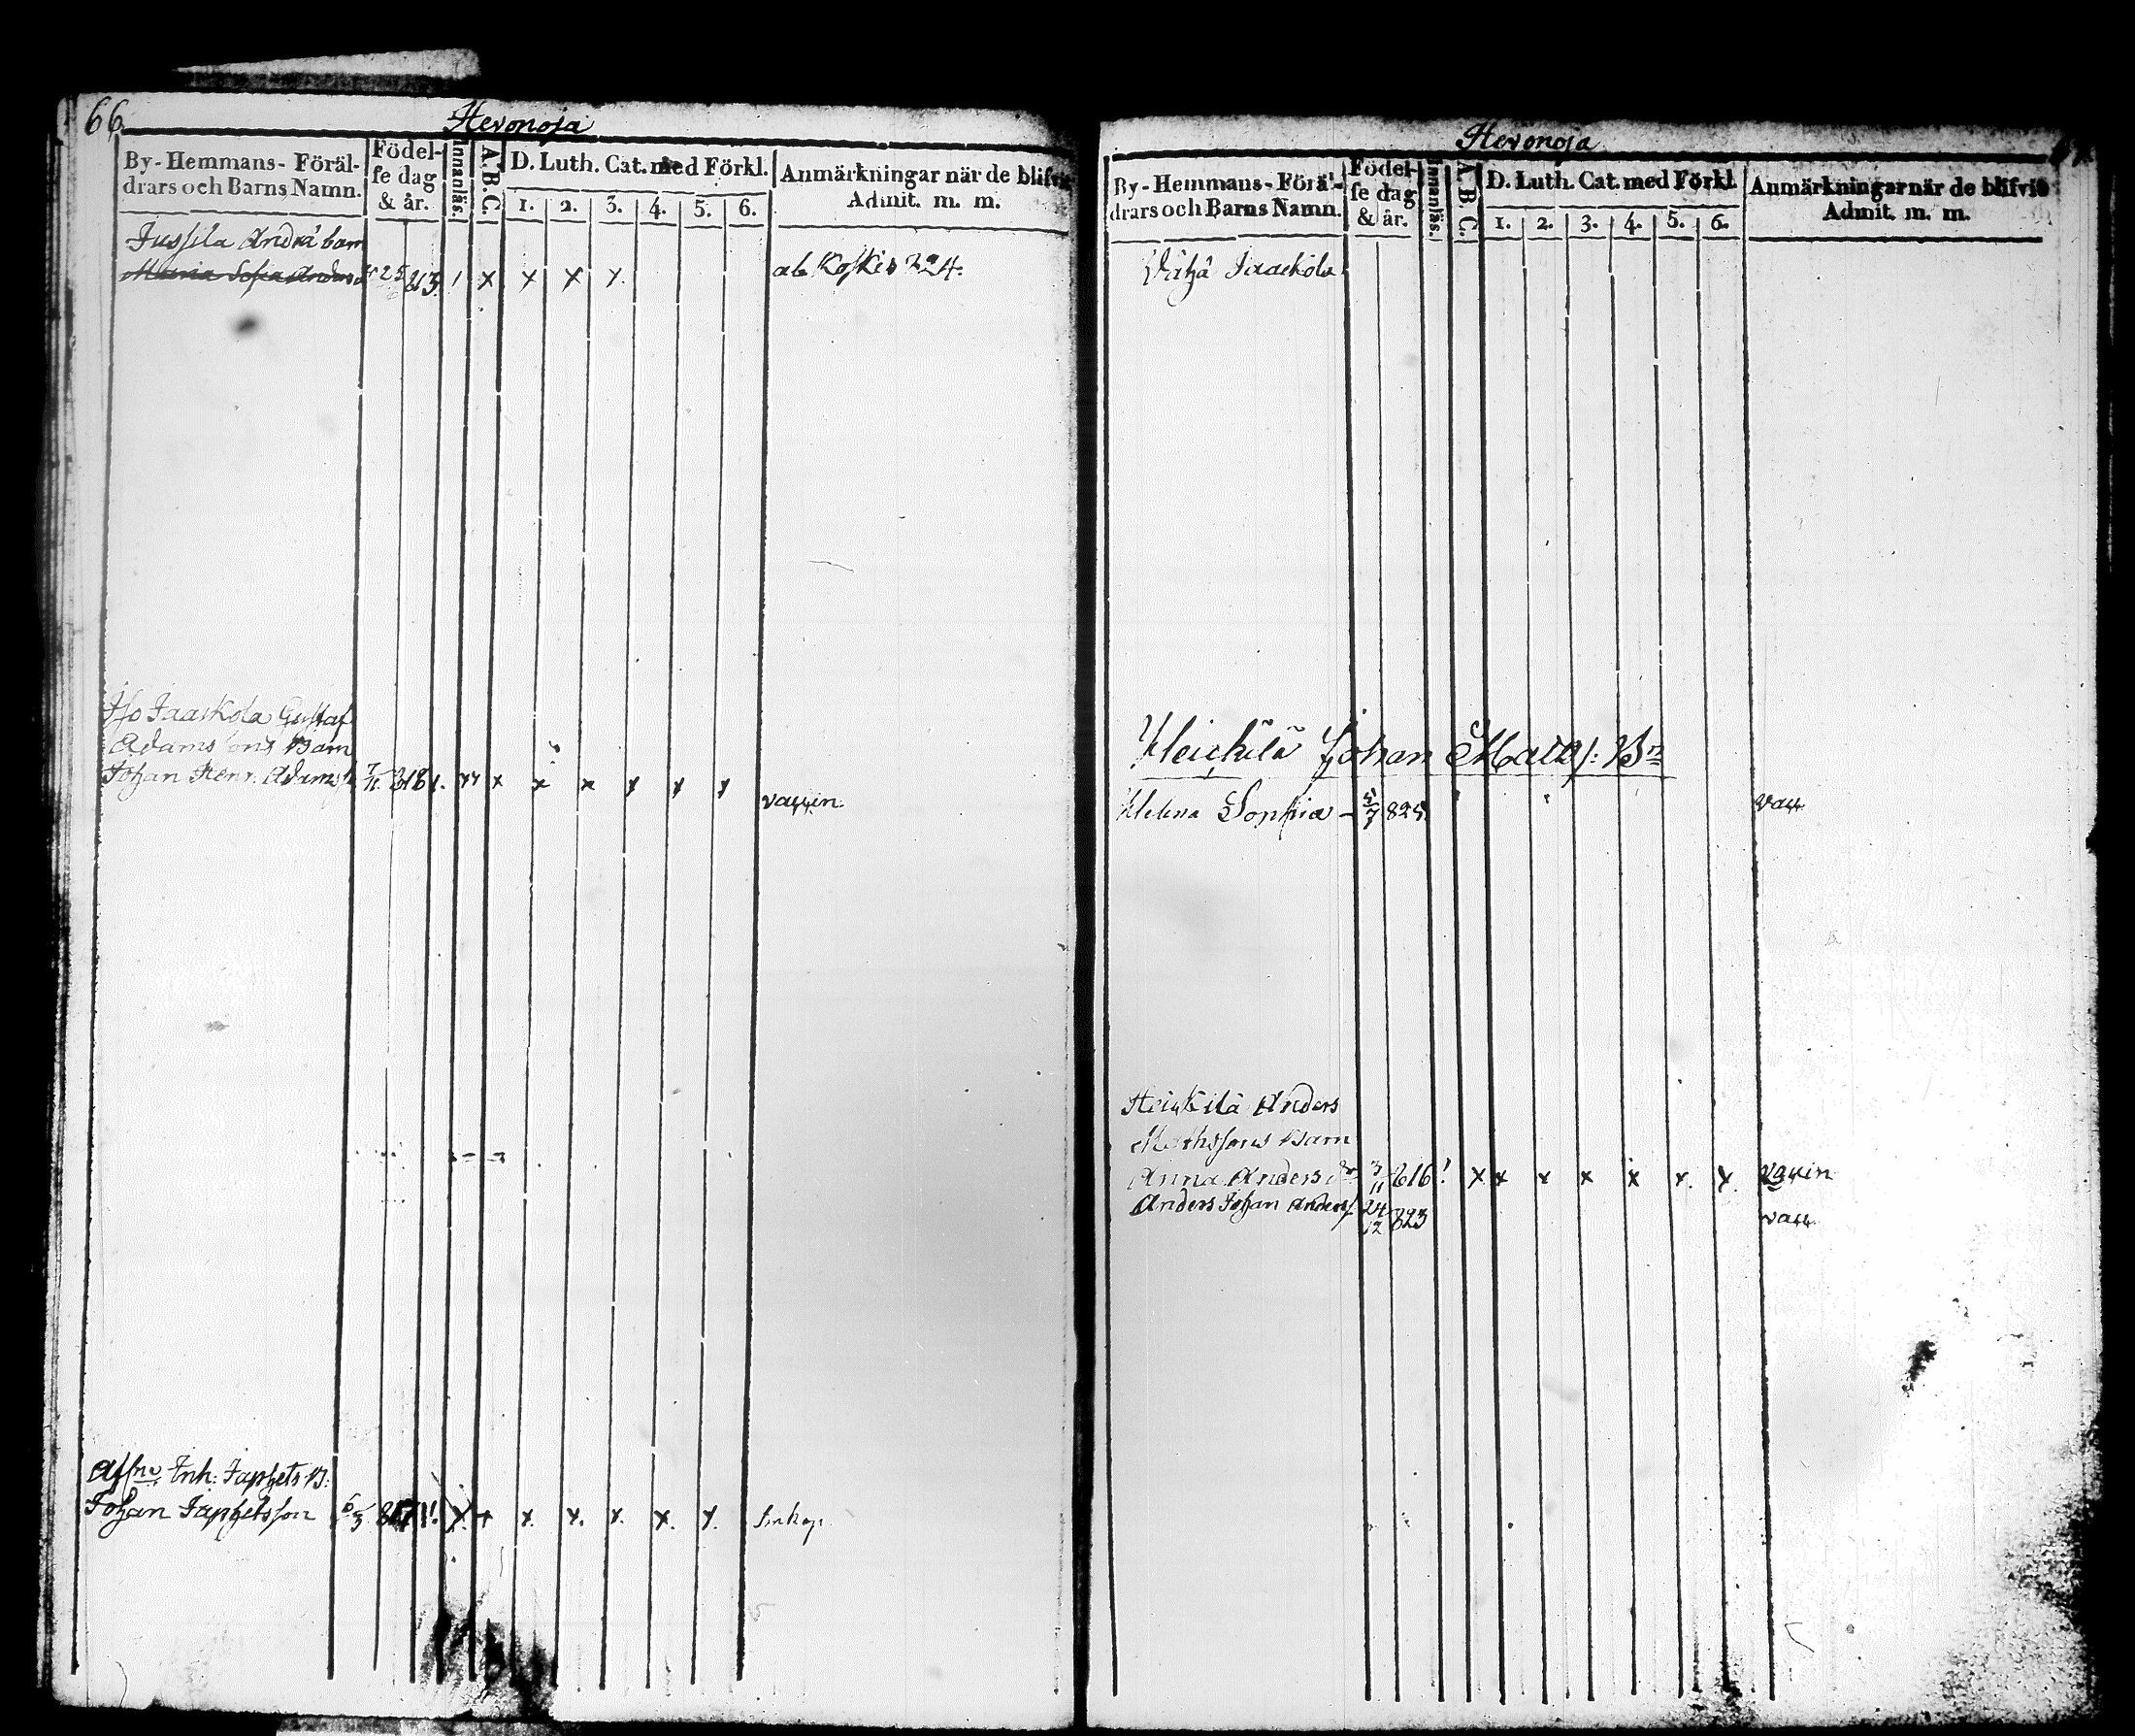 66
Hevonoja
By-Hemmans-Föräl-
drars och Barns Namn.
Födel-
se dag
& år.
Innanläs.
A. B. C.
D. Luth. Cat. med Förkl.
1. 2. 3. 4. 5. 6.
Anmärkningar när de blifvit
Admit. m. m.
Jussila Andrs barn
Maria Sofia Anders dr 25 813. x x x x ab Koskis 24.
Iso Jaackola Gustaf
Adamssons Barn
Johan Henr. Adamss. 7/11 x x x x x x x
vaccin.
Inh: Japhets B:
Johan Japhetsson 6/3 x x x x x x x
Hevonoja
67
By-Hemmans-Förä-
drars och Barns Namn.
Födel-
se dag
& år.
Innanläs.
A. B. C.
D. Luth. Cat. med Förkl.
1. 2. 3. 4. 5. 6.
Anmärkningar när de blifvit
Admit. m. m.
Vähä Jaackola
Heickilä Johan Matss: Bn
Helena Sophia - 5/7 825. vacc.
Heickilä Anders
Mathssons Barn
Anna Anders dr 3/11 816 x x x x x x x vaccin
Anders Johan Anderss. 24/12 823 vacc.